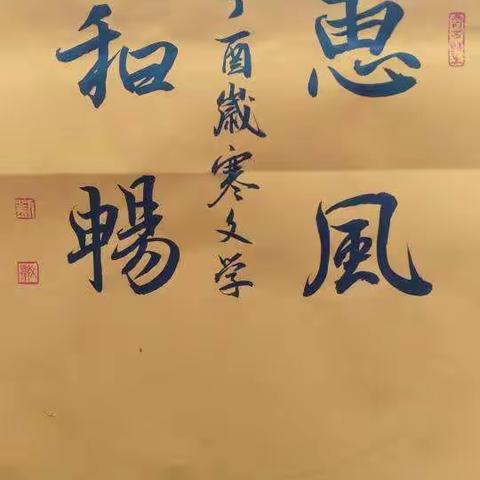 惠風
酉歲寒文学
和暢